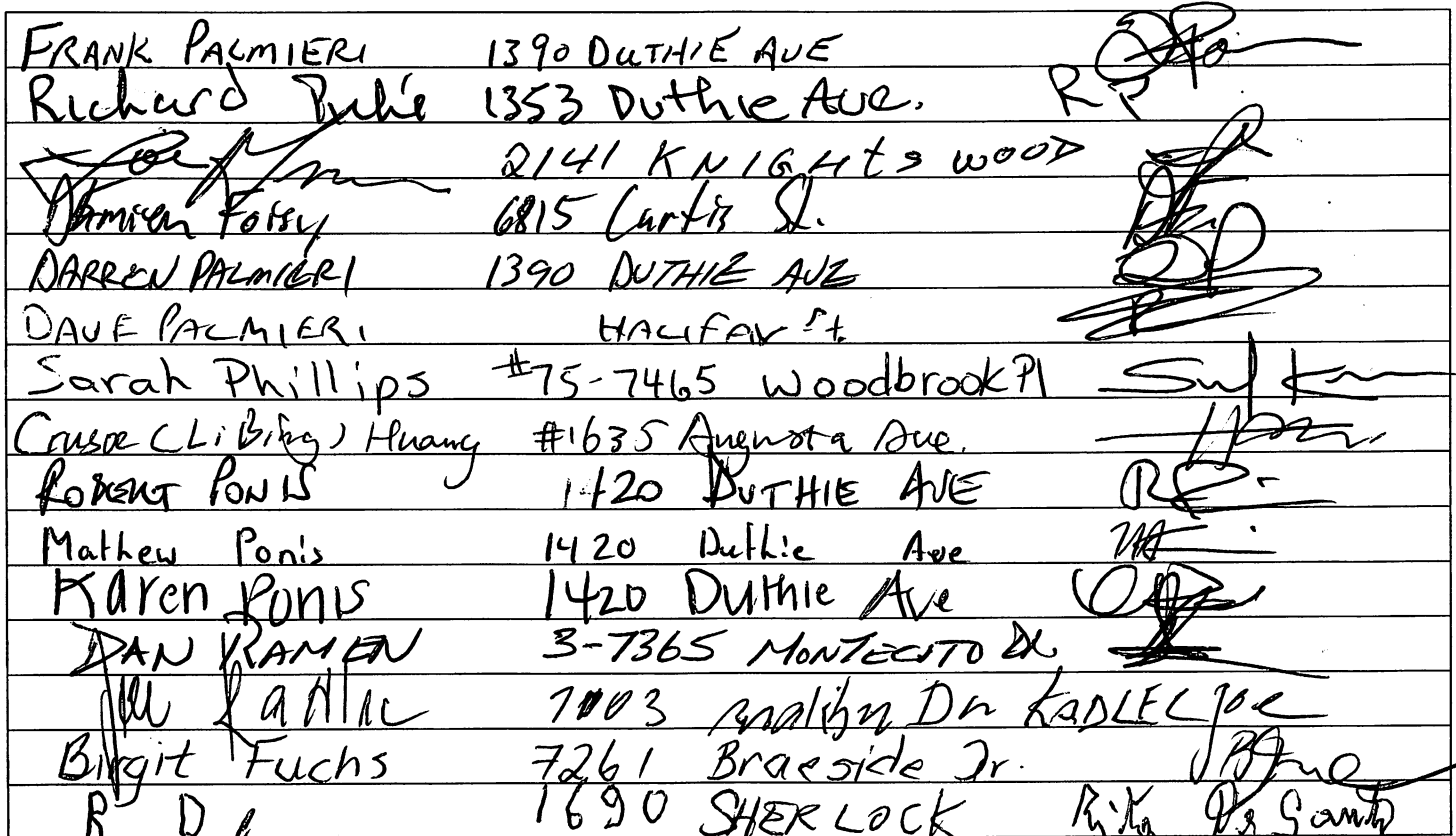 FRANK PALMIERI 1390 DUTHIE AVE
Richard 1353 Duthie Ave. RP
Joe 2141 KNIGHTS WOOD
Damien Foisy 6815 Curtis St.
DARREN PALMIERI 1390 DUTHIE AVE
DAVE PALMIERI HALIFAX St.
Sarah Phillips #75-7465 Woodbrook Pl
Crusoe (Li Bing) Huang #1635 Augusta Ave.
ROBERT PONIS 1420 DUTHIE AVE
Mathew Ponis 1420 Duthie Ave
Karen Ponis 1420 Duthie Ave
DAN KAMEN 3-7365 MONTECITO DR
7103 Dr KADLEC Joe
Birgit Fuchs 7261 Braeside Dr.
R D 1690 SHERLOCK Rita